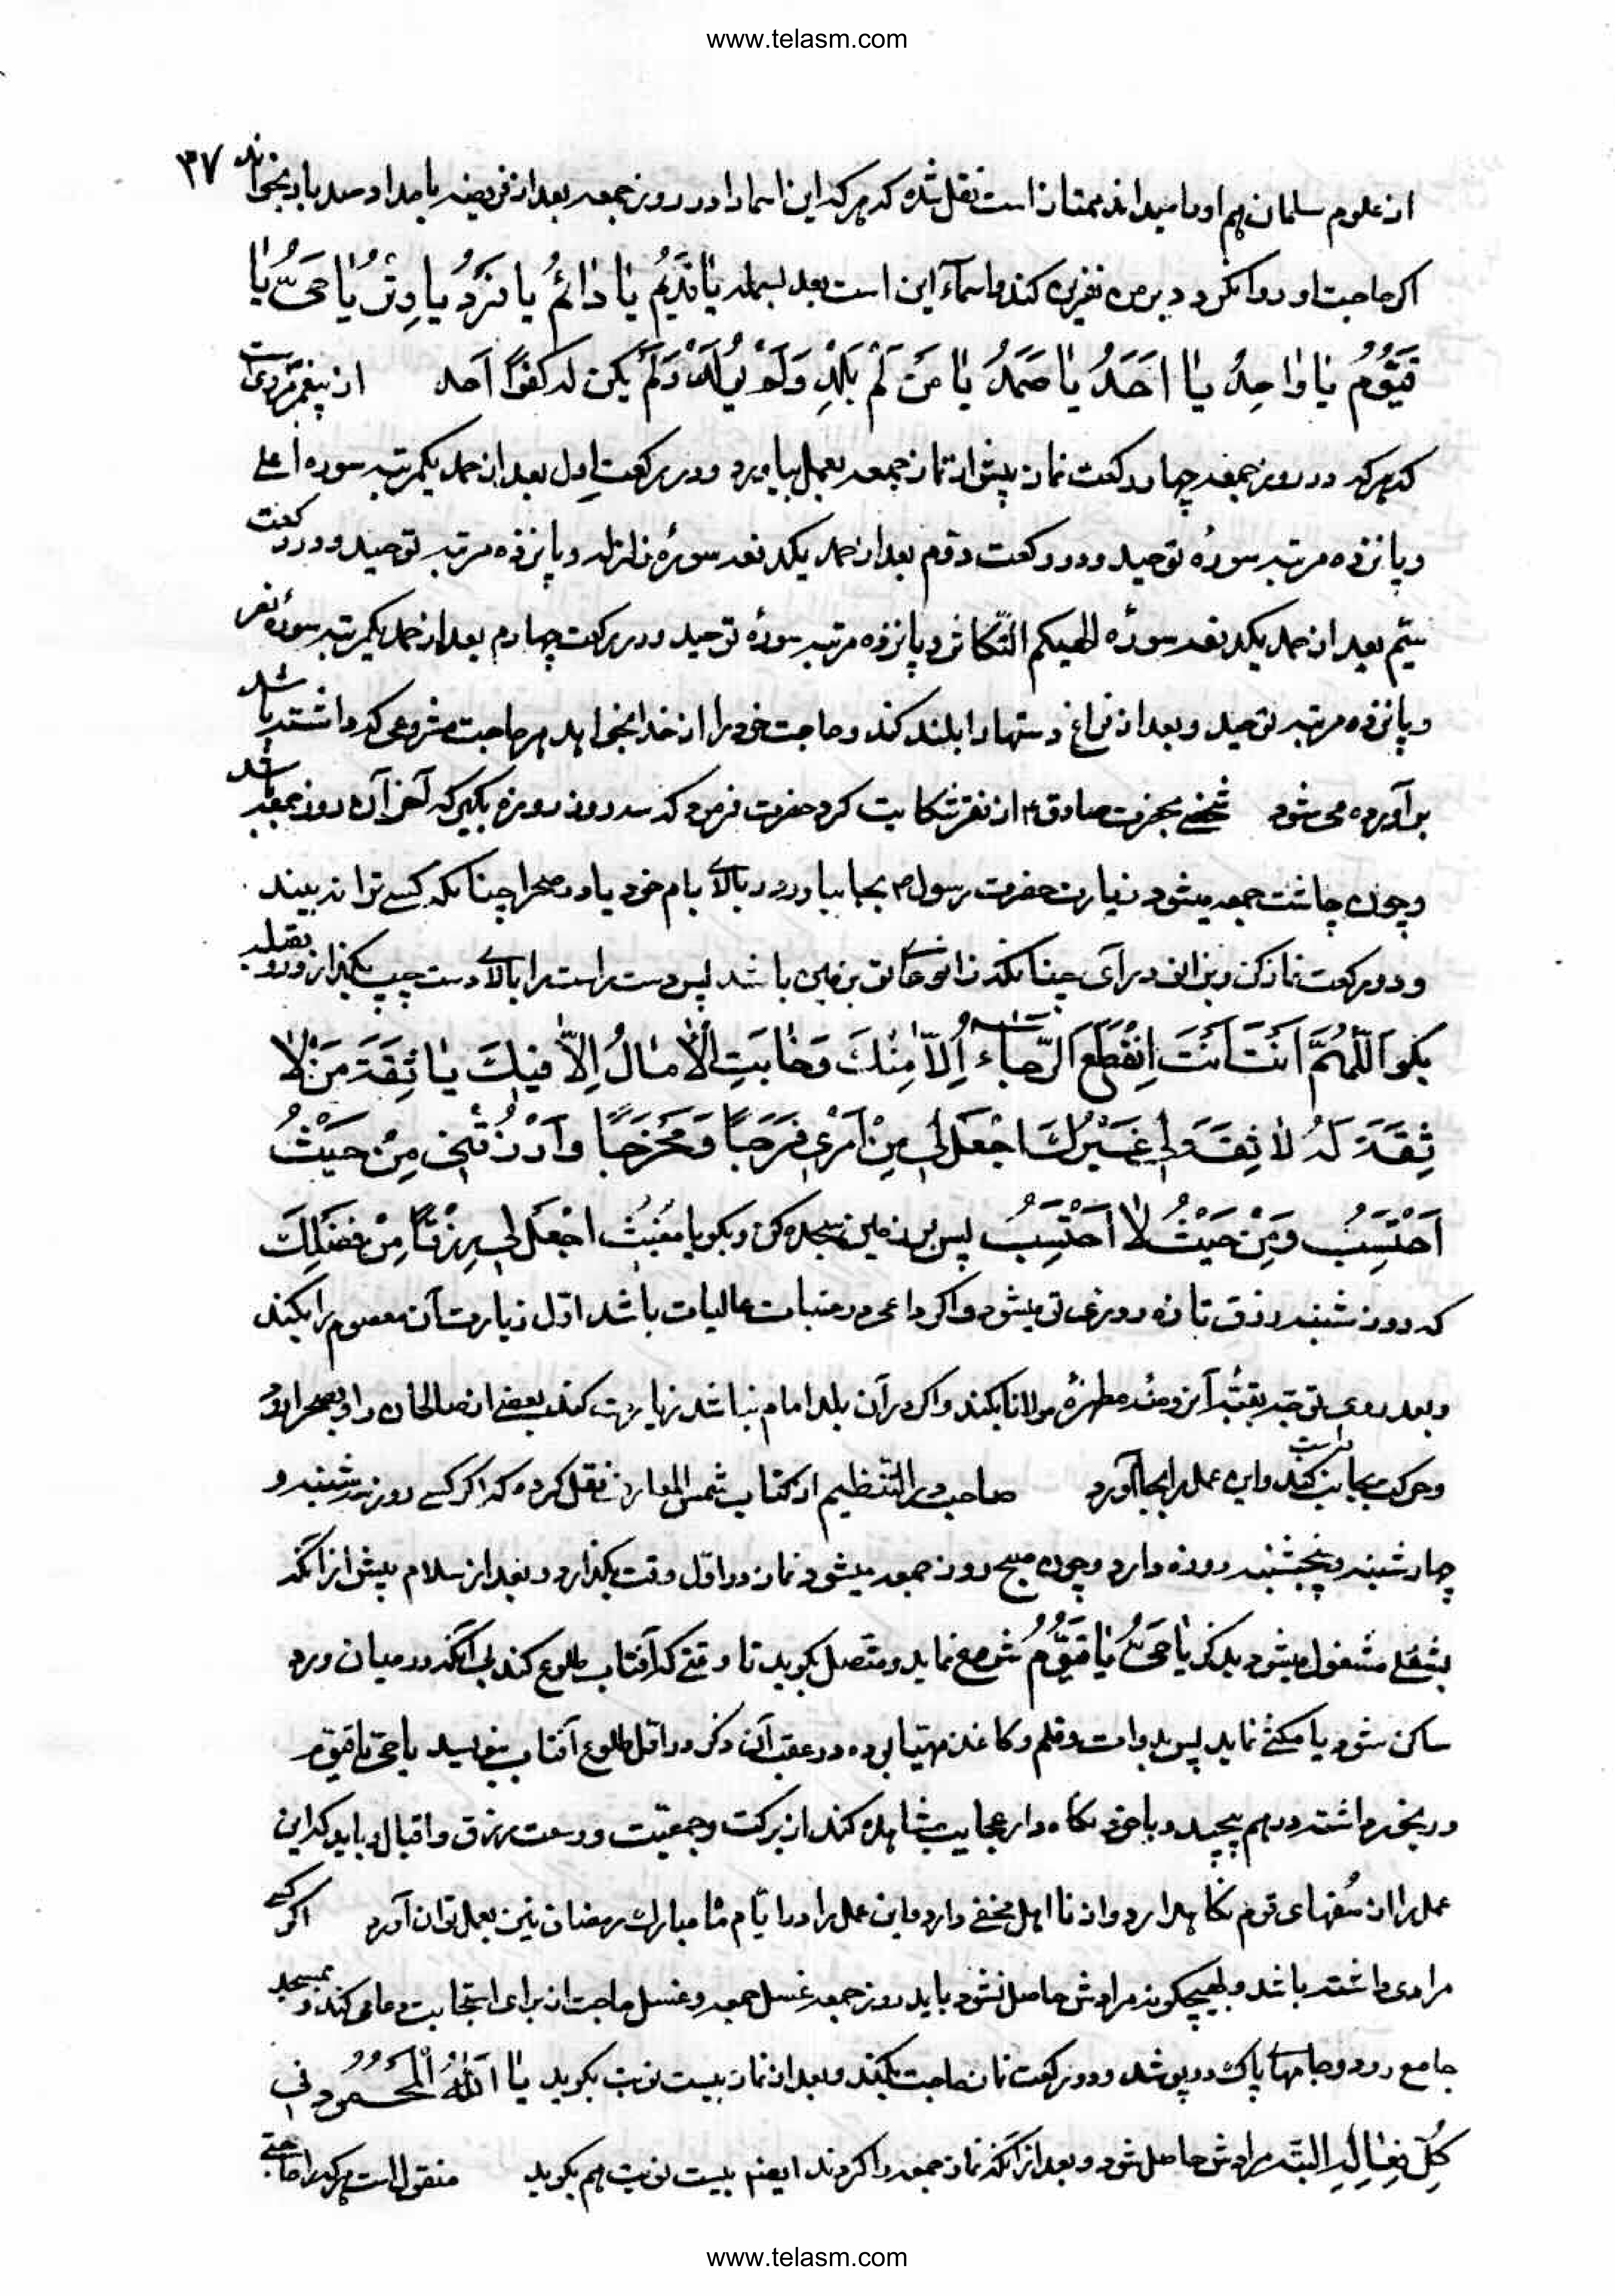 www.telasm.com
٣٧
از علوم سلمان هم او را میداند ممتاز است نقل شده که هر که این اسما را در روز جمعه بعد از فریضه بامداد صد بار بخواند
اگر حاجت او روا نگردد بر من نفرین کند و اسماء این است بعد بسمله یٰا قَدیٖمُ یٰا دٰائِمُ یا فَرْدُ یا وِتْرُ یٰا حَیُّ یٰا
قَیُّومُ یٰا وٰاحِدُ یٰا اَحَدُ یٰا صَمَدُ یٰا مَنْ لَمْ یَلِدْ وَلَمْ یُولَدْ وَلَمْ یکن له کفواً اَحد از پیغمبر مرویست
که هر که در روز جمعه چهار رکعت نماز پیش از نماز جمعه بعمل بیاورد و در رکعت اول بعد از حمد یکمرتبه سوره اعلی
و پانزده مرتبه سورهٔ توحید و در رکعت دوّم بعد از حمد یکدفعه سورهٔ زلزله و پانزده مرتبه توحید و در رکعت
سیّم بعد از حمد یکدفعه سورهٔ الهیکم التّکاثر و پانزده مرتبه سورهٔ توحید و در رکعت چهارم بعد از حمد یکمرتبه سورهٔ نصر
و پانزده مرتبه توحید و بعد از فراغ دستها را بلند کند و حاجت خود را از خدا بخواهد هر حاجت مشروعی که داشته باشد
برآورده می شود شخصی بحضرت صادق ع از فقر شکایت کرد حضرت فرمود که سه روز روزه بگیر که آخر آن روز جمعه باشد
و چون چاشت جمعه میشود زیارت حضرت رسول ص بجا بیاور در بالای بام خود یا در صحرا چنانکه کسی ترا نبیند
و دو رکعت نماز کن و بزانو درآی چنانکه زانوهایت بر زمین باشد پس دست راست را بالای دست چپ بگذار و رو بقبله
بگو اَللّٰهُمَّ اَنْتَ اَنْتَ اِنْقَطَعَ الرَّجٰاءُ اِلّاٰ مِنْكَ وَخٰابَتِ الْاٰمٰالُ اِلّاٰ فیكَ یٰا ثِقَةَ مَنْ لاٰ
ثِقَةَ لَهُ لاٰ ثِقَةَ لی غَیْرُكَ اجْعَلْ لی مِنْ اَمْری فَرَجاً وَمَخْرَجاً وَارْزُقْنی مِنْ حَیْثُ
اَحْتَسِبُ وَمِنْ حَیْثُ لاٰ اَحْتَسِبُ پس بر زمین سجده کن و بگو یا مُغیثُ اجْعَلْ لی رِزْقاً مِنْ فَضْلِكَ
که روز شنبه رزق تازه روزی تو میشود و اگر داعی در عتبات عالیات باشد اوّل زیارت آن معصوم را بکند
و بعد روی توجّه بقبّهٔ آن روضهٔ مطهرهٔ مولانا بکند و اگر در آن بلد امام نباشد زیارت کند بعضی از صالحان را و بصحرا رود
و حرکت بجانب راست کند و این عمل را بجا آورد صاحب درّ النّظیم از کتاب شمس المعارف نقل کرده که اگر کسی روز سه شنبه و
چهارشنبه و پنجشنبه روزه دارد و چون صبح روز جمعه میشود نماز در اوّل وقت بگذارد و بعد از سلام پیش از آنکه
بشغلی مشغول میشود بذکر یٰا حَیُّ یٰا قَیُّومُ شروع نماید و متّصل بگوید تا وقتی که آفتاب طلوع کند بی آنکه در میان ورد
ساکن شود یا مکثی نماید پس دوات و قلم و کاغذ مهیّا بوده در عقب آن ذکر در اوّل طلوع آفتاب بنویسد یا حیّ یا قیّوم
در پیچیده باخود نگاه دارد عجایب مشاهده کند از برکت و جمعیّت و وسعت رزق و اقبال و باید که این
عمل را از سُفهای قوم نگاه دارد و از نااهل مخفی دارد و این عمل را در ایّام ماه مبارك رمضان نیز بعمل توان آورد اگر کسی
مرادی داشته باشد و بهیچگونه مرادش حاصل نشود باید روز جمعه غسل جمعه و غسل حاجت از برای استجابت دعا می کند و بمسجد
جامع رود و جامهای پاك درپوشد و دو رکعت نماز حاجت بکند و بعد از نماز بیست نوبت بگوید یٰا اَللّٰهُ الْمَحْمُودُ فی
کُلِّ فِعٰالِهِ البته مرادش حاصل شود و بعد از آنکه نماز جمعه را کردند ایضاً بیست نوبت هم بگوید منقول است هر که را حاجتی
www.telasm.com